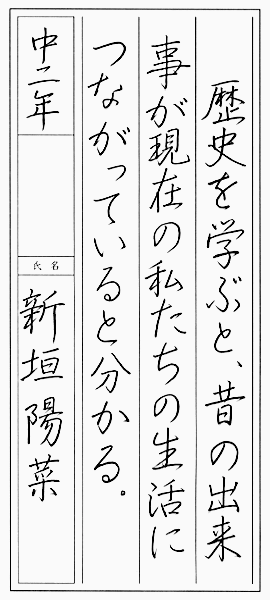 歴史を学ぶと、昔の出来
事が現在の私たちの生活に
つながっていると分かる。
中二年
氏名
新垣陽菜